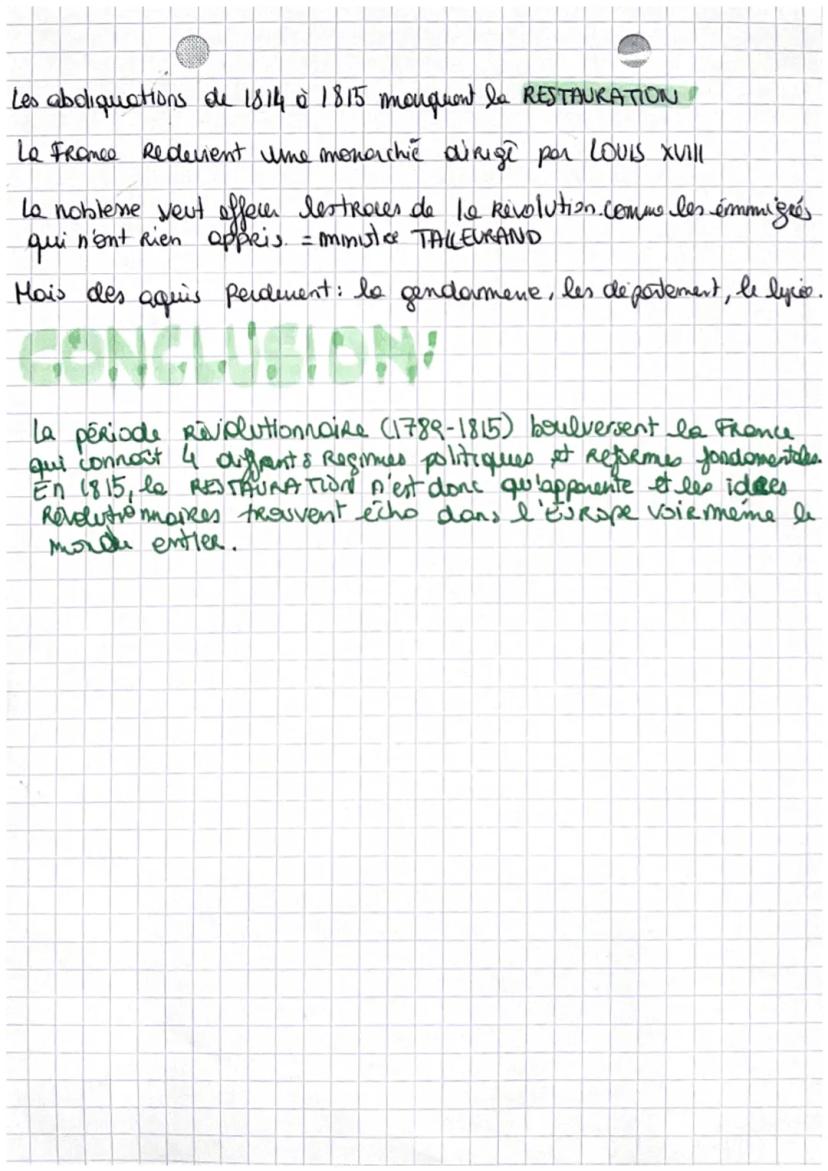 Les abdiquations de 1814 à 1815 marquent la RESTAURATION
La France Redevient une monarchie dirigé par LOUIS XVIII
La noblesse veut effacer les traces de la Révolution. comme les émmigrés
qui n'ont Rien appris. = ministre TALLEYRAND
Mais des aquis perdurent : la gendarmerie, les département, le lycée.
CONCLUSION:
La période Révolutionnaire (1789-1815) boulversent la France
qui connaît 4 diffrants Regimes politiques et Reformes fondamentales.
En 1815, la RESTAURATION n'est donc qu'apparente et les idées
Révolutionnaires trouvent écho dans l'Europe voir même le
monde entier.